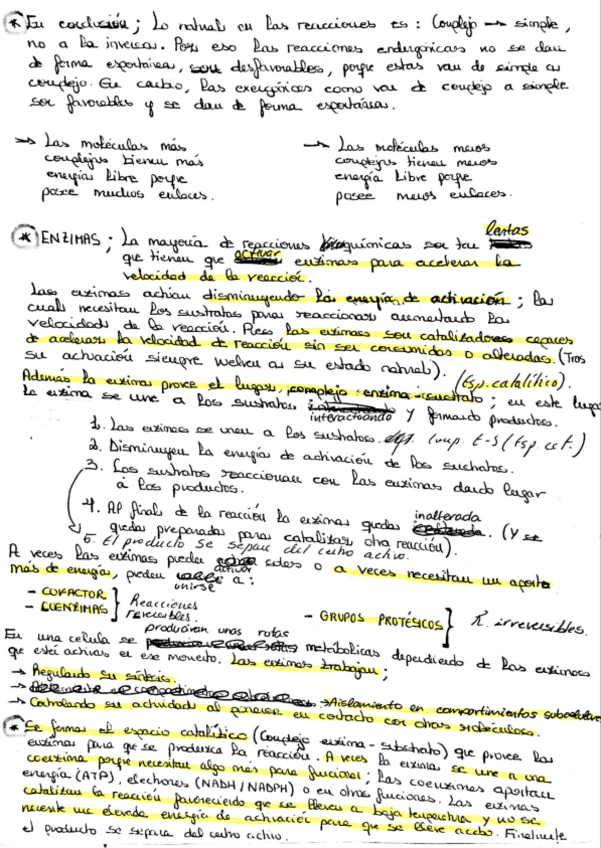 * En conclusión; Lo natural en las reacciones es: Complejo → simple,
no a la inversa. Por eso las reacciones endergónicas no se dan
de forma espontánea, son desfavorables, porque estas van de simple a
complejo. En cambio, las exergónicas como van de complejo a simple
son favorables y se dan de forma espontánea.
→ Las moléculas más
complejas tienen más
energía libre porque
posee muchos enlaces.
→ Las moléculas menos
complejas tienen menos
energía libre porque
posee menos enlaces.
* ENZIMAS; La mayoría de reacciones bioquímicas son tan lentas
que tienen que activar enzimas para acelerar la
velocidad de la reacción.
Las enzimas actúan disminuyendo la energía de activación; la
cual necesitan los sustratos para reaccionar aumentando la
velocidad de la reacción. Pues las enzimas son catalizadores capaces
de acelerar la velocidad de reacción sin ser consumidos o alterados. (Tras
su activación siempre vuelven a su estado natural).
(Esp. catalítico).
Además la enzima provee el lugar, complejo enzima-sustrato; en este lugar
la enzima se une a los sustratos interactoando y formando productos.
1. Las enzimas se unen a los sustratos. comp. E-S (Esp. cat.)
2. Disminuyen la energía de activación de los sustratos.
3. Los sustratos reaccionan con las enzimas dando lugar
a los productos.
4. Al final de la reacción la enzima queda inalterada. (Y se
queda preparada para catalizar otra reacción).
5. El producto se separa del centro activo.
A veces las enzimas pueden activar solas o a veces necesitan un aporte
más de energía, pueden unirse a:
- COFACTOR
- COENZIMAS } Reacciones
reversibles.
- GRUPOS PROTÉSICOS } R. irreversibles.
En una celula se produciran unas rutas metabólicas dependiendo de las enzimas
que estén activas en ese momento. Las enzimas trabajan;
→ Regulando su síntesis.
→ Aislamiento en compartimientos subcelulares
→ Controlando su actividad al ponerse en contacto con otras moléculas.
* Se forma el espacio catalítico (Complejo enzima-substrato) que provee la
enzima para que se produzca la reacción. A veces la enzima se une a una
coenzima porque necesitan algo más para funcionar; las coenzimas aportan
energía (ATP), electrones (NADH/NADPH) o en otras funciones. Las enzimas
catalizan la reacción favoreciendo que se lleven a baja temperatura y no se
necesite una elevada energía de activación para que se lleve acabo. Finalmente
el producto se separa del centro activo.